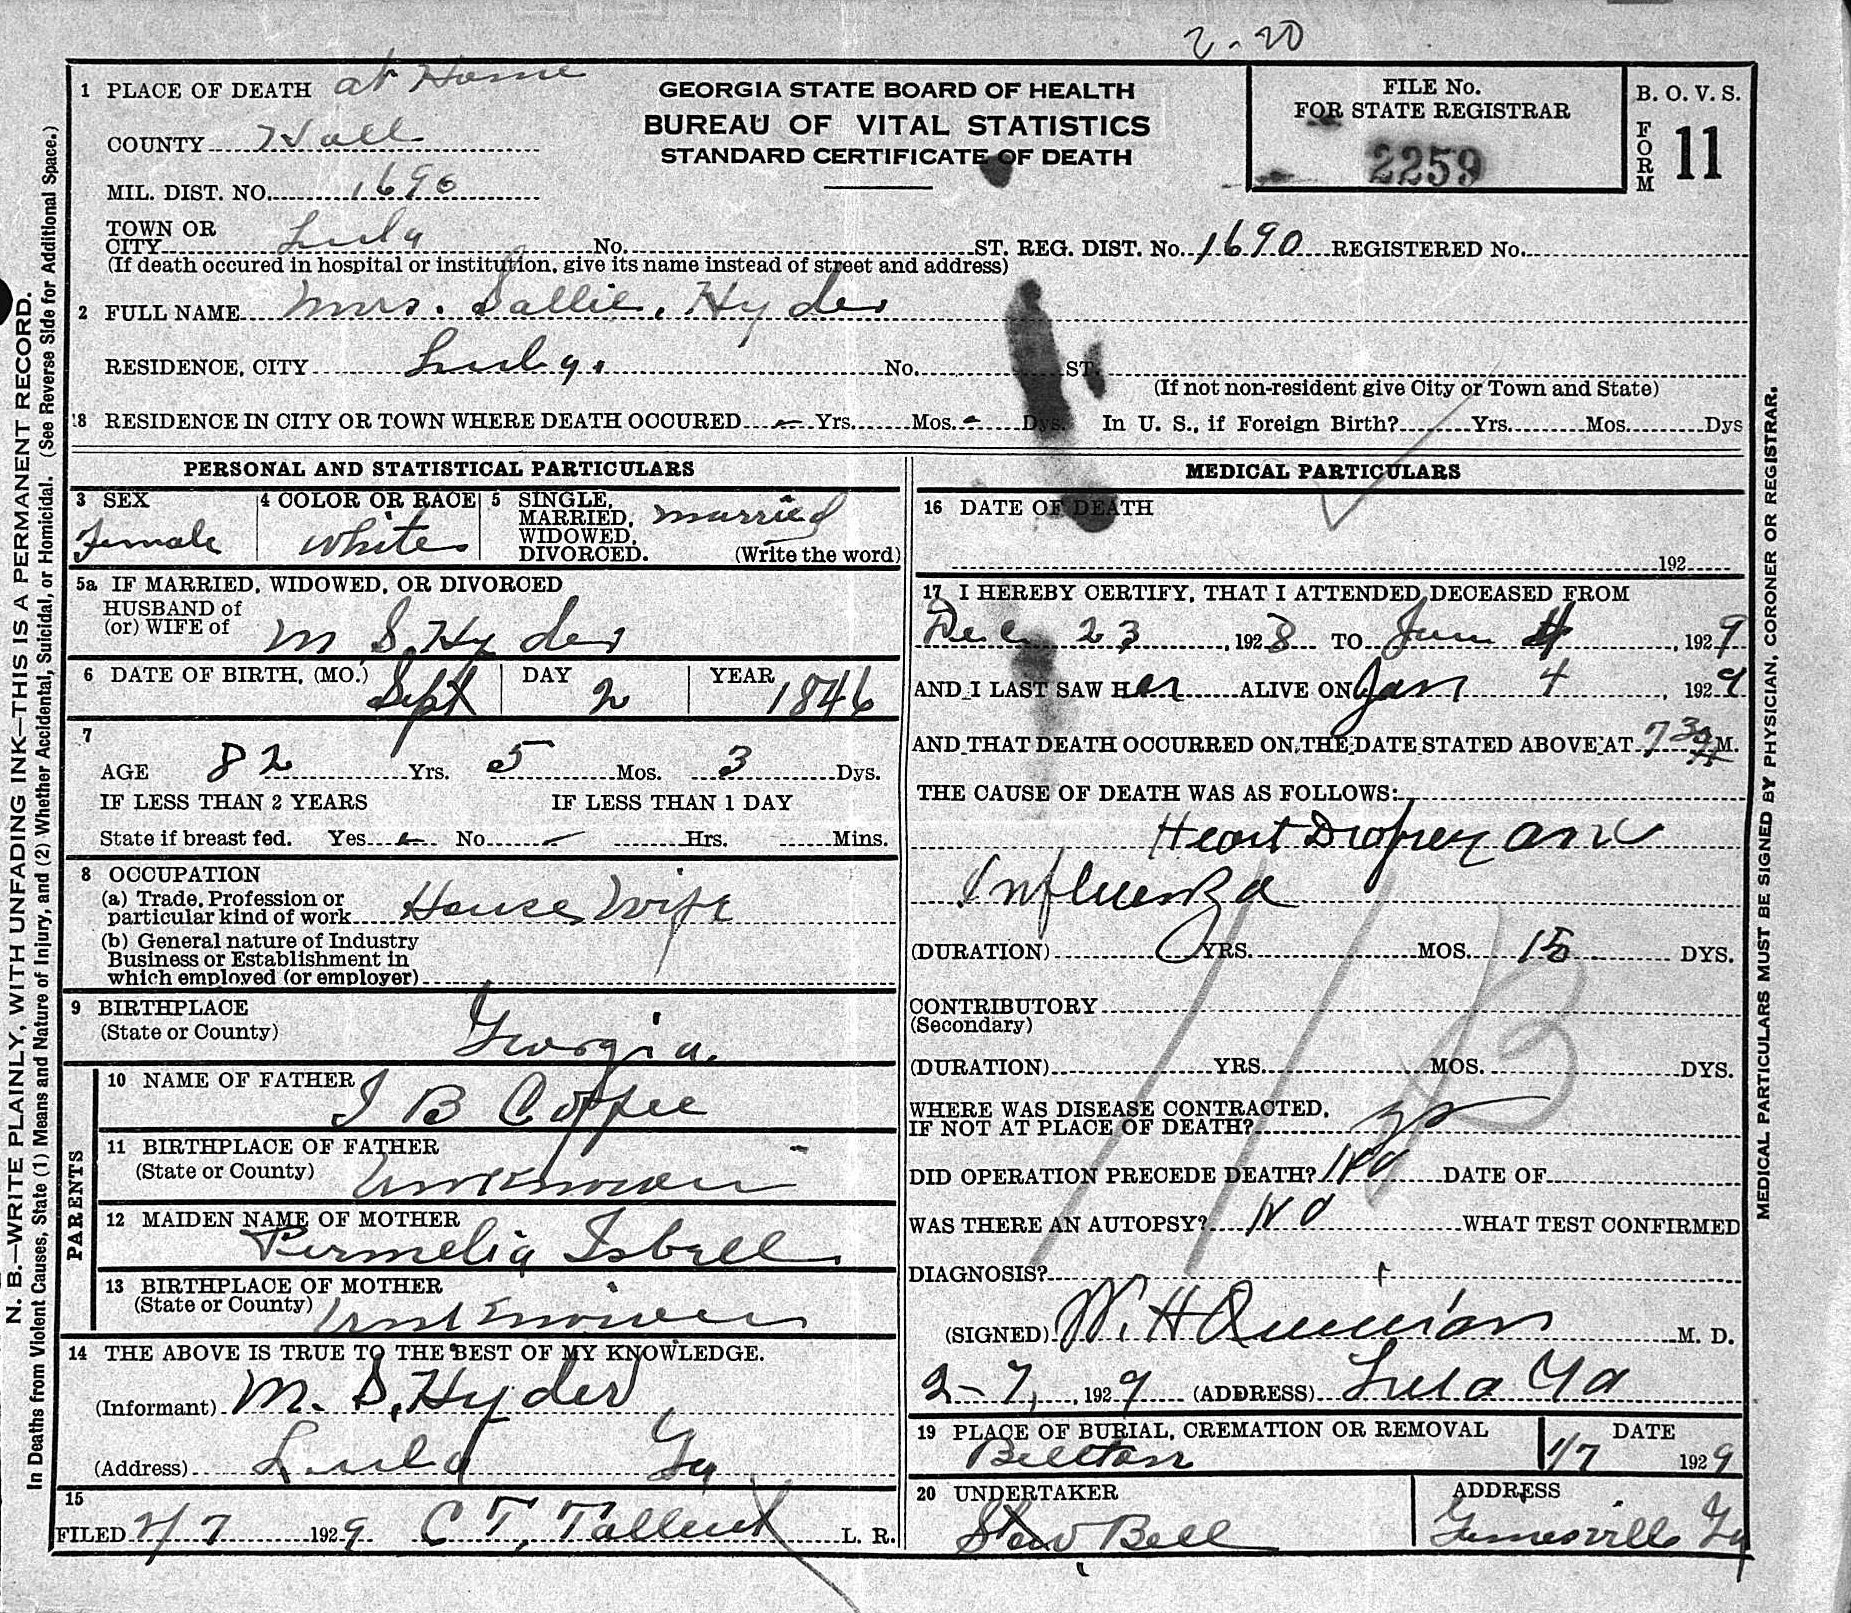 2-20
1 PLACE OF DEATH at Home
COUNTY Hall
MIL. DIST. NO. 1690
TOWN OR CITY Lula No. ST. REG. DIST. No. 1690 REGISTERED No.
(If death occured in hospital or institution, give its name instead of street and address)
GEORGIA STATE BOARD OF HEALTH
BUREAU OF VITAL STATISTICS
STANDARD CERTIFICATE OF DEATH
FILE No.
FOR STATE REGISTRAR
2259
B. O. V. S.
FORM 11
2 FULL NAME Mrs. Sallie, Hyder
RESIDENCE, CITY Lula. No. ST.
(If not non-resident give City or Town and State)
18 RESIDENCE IN CITY OR TOWN WHERE DEATH OCCURED - Yrs. Mos. - Dys. In U. S., if Foreign Birth? Yrs. Mos. Dys
PERSONAL AND STATISTICAL PARTICULARS
3 SEX Female
4 COLOR OR RACE White
5 SINGLE, MARRIED, WIDOWED, DIVORCED. married
(Write the word)
5a IF MARRIED, WIDOWED, OR DIVORCED
HUSBAND of
(or) WIFE of M S. Hyder
6 DATE OF BIRTH, (MO.) Sept DAY 2 YEAR 1846
7
AGE 82 Yrs. 5 Mos. 3 Dys.
IF LESS THAN 2 YEARS IF LESS THAN 1 DAY
State if breast fed. Yes - No - Hrs. Mins.
8 OCCUPATION
(a) Trade, Profession or
particular kind of work House Wife
(b) General nature of Industry
Business or Establishment in
which employed (or employer)
9 BIRTHPLACE
(State or County) Georgia.
PARENTS
10 NAME OF FATHER I B Coffee
11 BIRTHPLACE OF FATHER
(State or County) Unknown
12 MAIDEN NAME OF MOTHER
Permelia Isbell
13 BIRTHPLACE OF MOTHER
(State or County) Unknown
14 THE ABOVE IS TRUE TO THE BEST OF MY KNOWLEDGE.
(Informant) M. S. Hyder
(Address) Lula Ga
15
FILED 2/7 1929 C T. Tallent L. R.
MEDICAL PARTICULARS
16 DATE OF DEATH
192
17 I HEREBY CERTIFY, THAT I ATTENDED DECEASED FROM
Dec 23, 1928 TO Jan 4, 1929
AND I LAST SAW Her ALIVE ON Jan 4, 1929
AND THAT DEATH OCCURRED ON THE DATE STATED ABOVE AT 7 30 A M.
THE CAUSE OF DEATH WAS AS FOLLOWS:
Heart Dropsey and
Influenza
(DURATION) YRS. MOS. 15 DYS.
11B
CONTRIBUTORY
(Secondary)
(DURATION) YRS. MOS. DYS.
WHERE WAS DISEASE CONTRACTED,
IF NOT AT PLACE OF DEATH?
DID OPERATION PRECEDE DEATH? No DATE OF
WAS THERE AN AUTOPSY? No WHAT TEST CONFIRMED
DIAGNOSIS?
(SIGNED) W. H Quinian M. D.
2-7, 1929 (ADDRESS) Lula Ga
19 PLACE OF BURIAL, CREMATION OR REMOVAL DATE
Bellton 1/7 1929
20 UNDERTAKER ADDRESS
Stow Bell Gainesville Ga
N. B.—WRITE PLAINLY, WITH UNFADING INK—THIS IS A PERMANENT RECORD.
In Deaths from Violent Causes, State (1) Means and Nature of Injury, and (2) Whether Accidental, Suicidal, or Homicidal. (See Reverse Side for Additional Space.)
MEDICAL PARTICULARS MUST BE SIGNED BY PHYSICIAN, CORONER OR REGISTRAR.